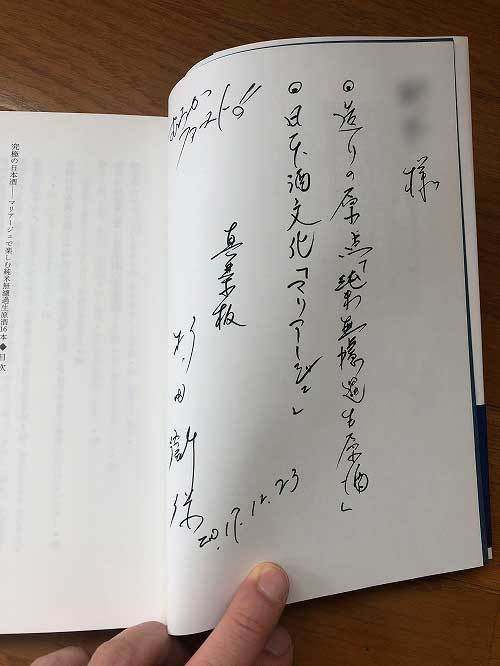 様
◉造りの原点「純米無濾過生原酒」
◉日本酒文化「マリアージュ」
真菜板
杉田衛保
2017.12.23
究極の日本酒——マリアージュで楽しむ純米無濾過生原酒16本◆目次